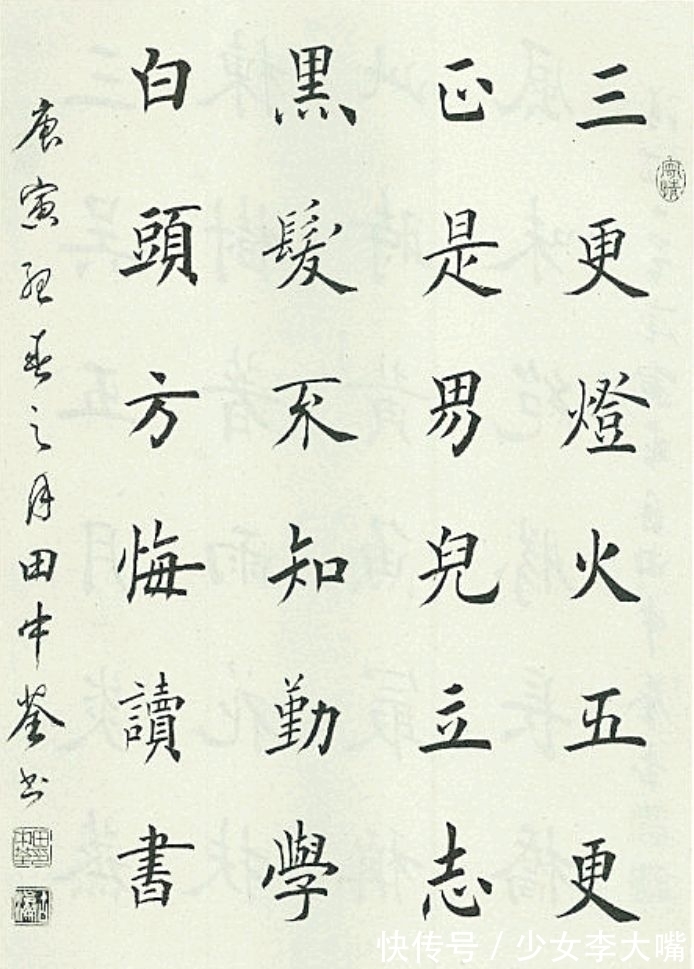 三更燈火五更
正是男兒立志
黑髮不知勤學
白頭方悔讀書
庚寅春之月田中荃书
快传号 / 少女李大嘴